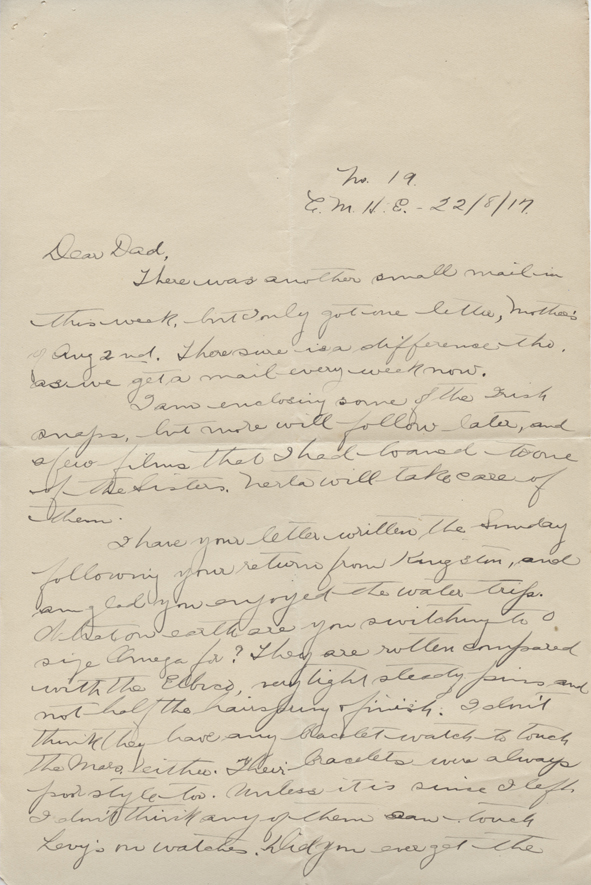 No. 19.
E. M. H. E. - 22/8/17.
Dear Dad,
There was another small mail in
this week, but I only got one letter, Mother's
of Aug 2nd. There sure is a difference tho.
as we get a mail every week now.
I am enclosing some of the Irish
snaps, but more will follow later, and
a few films that I had loaned to one
of the Sisters. Nerta will take care of
them.
I have your letter written the Sunday
following your return from Kingston, and
am glad you enjoyed the water trip.
What on earth are you switching to 0
size Omega for? They are rotten compared
with the , very light steady pins and
not half the hairspring & finish. I don't
think they have any bracelet watch to touch
the either. Their bracelets were always
poor style too. Unless it is since I left
I don't think any of them can touch
Levy's on watches. Did you ever get the